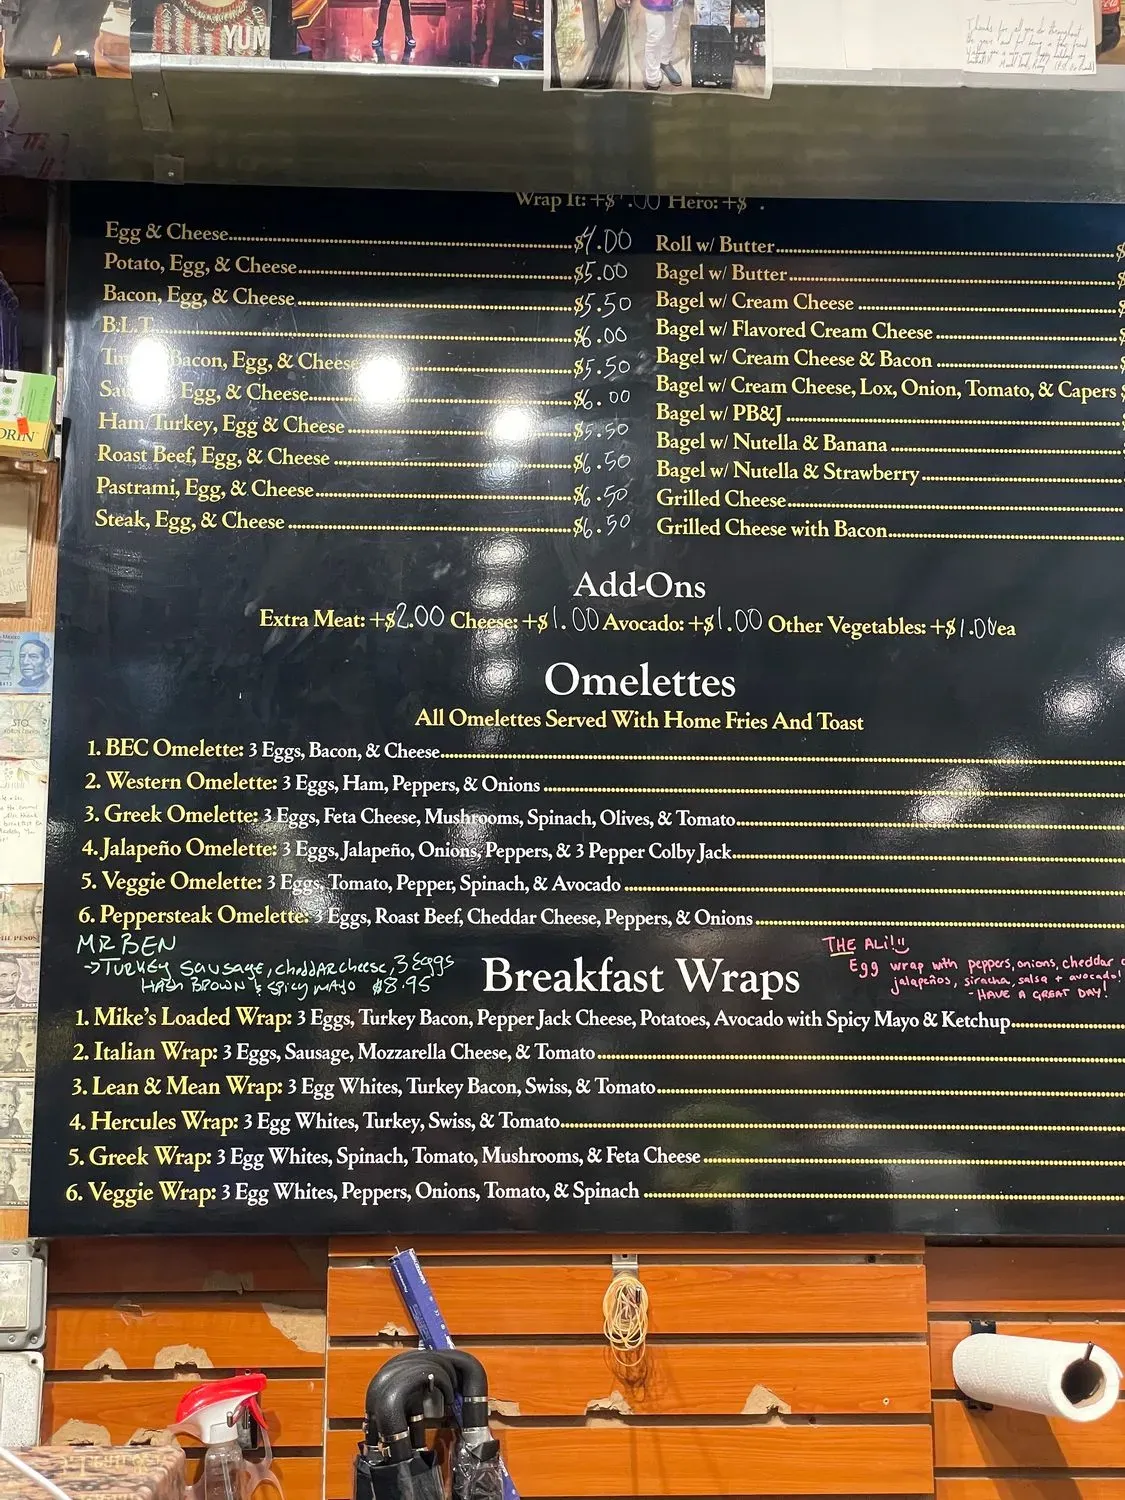 YUM
Wrap It: +$ .00 Hero: +$ .
Egg & Cheese $4.00
Potato, Egg, & Cheese $5.00
Bacon, Egg, & Cheese $5.50
B.L.T. $6.00
Bacon, Egg, & Cheese $5.50
Egg, & Cheese $6.00
Ham/Turkey, Egg & Cheese $5.50
Roast Beef, Egg, & Cheese $6.50
Pastrami, Egg, & Cheese $6.50
Steak, Egg, & Cheese $6.50
Roll w/ Butter $
Bagel w/ Butter $
Bagel w/ Cream Cheese $
Bagel w/ Flavored Cream Cheese $
Bagel w/ Cream Cheese & Bacon $
Bagel w/ Cream Cheese, Lox, Onion, Tomato, & Capers $
Bagel w/ PB&J
Bagel w/ Nutella & Banana
Bagel w/ Nutella & Strawberry
Grilled Cheese
Grilled Cheese with Bacon
Add-Ons
Extra Meat: +$2.00 Cheese: +$1.00 Avocado: +$1.00 Other Vegetables: +$1.00ea
Omelettes
All Omelettes Served With Home Fries And Toast
1. BEC Omelette: 3 Eggs, Bacon, & Cheese
2. Western Omelette: 3 Eggs, Ham, Peppers, & Onions
3. Greek Omelette: 3 Eggs, Feta Cheese, Mushrooms, Spinach, Olives, & Tomato
4. Jalapeño Omelette: 3 Eggs, Jalapeño, Onions, Peppers, & 3 Pepper Colby Jack
5. Veggie Omelette: 3 Eggs, Tomato, Pepper, Spinach, & Avocado
6. Peppersteak Omelette: 3 Eggs, Roast Beef, Cheddar Cheese, Peppers, & Onions
MR BEN
→ Turkey Sausage, cheddar cheese, 3 Eggs
Hash Brown & Spicy Mayo $8.95
THE ALi!
Egg wrap with peppers, onions, cheddar
jalapeños, siracha, salsa + avocado!
- HAVE A GREAT DAY!
Breakfast Wraps
1. Mike's Loaded Wrap: 3 Eggs, Turkey Bacon, Pepper Jack Cheese, Potatoes, Avocado with Spicy Mayo & Ketchup
2. Italian Wrap: 3 Eggs, Sausage, Mozzarella Cheese, & Tomato
3. Lean & Mean Wrap: 3 Egg Whites, Turkey Bacon, Swiss, & Tomato
4. Hercules Wrap: 3 Egg Whites, Turkey, Swiss, & Tomato
5. Greek Wrap: 3 Egg Whites, Spinach, Tomato, Mushrooms, & Feta Cheese
6. Veggie Wrap: 3 Egg Whites, Peppers, Onions, Tomato, & Spinach